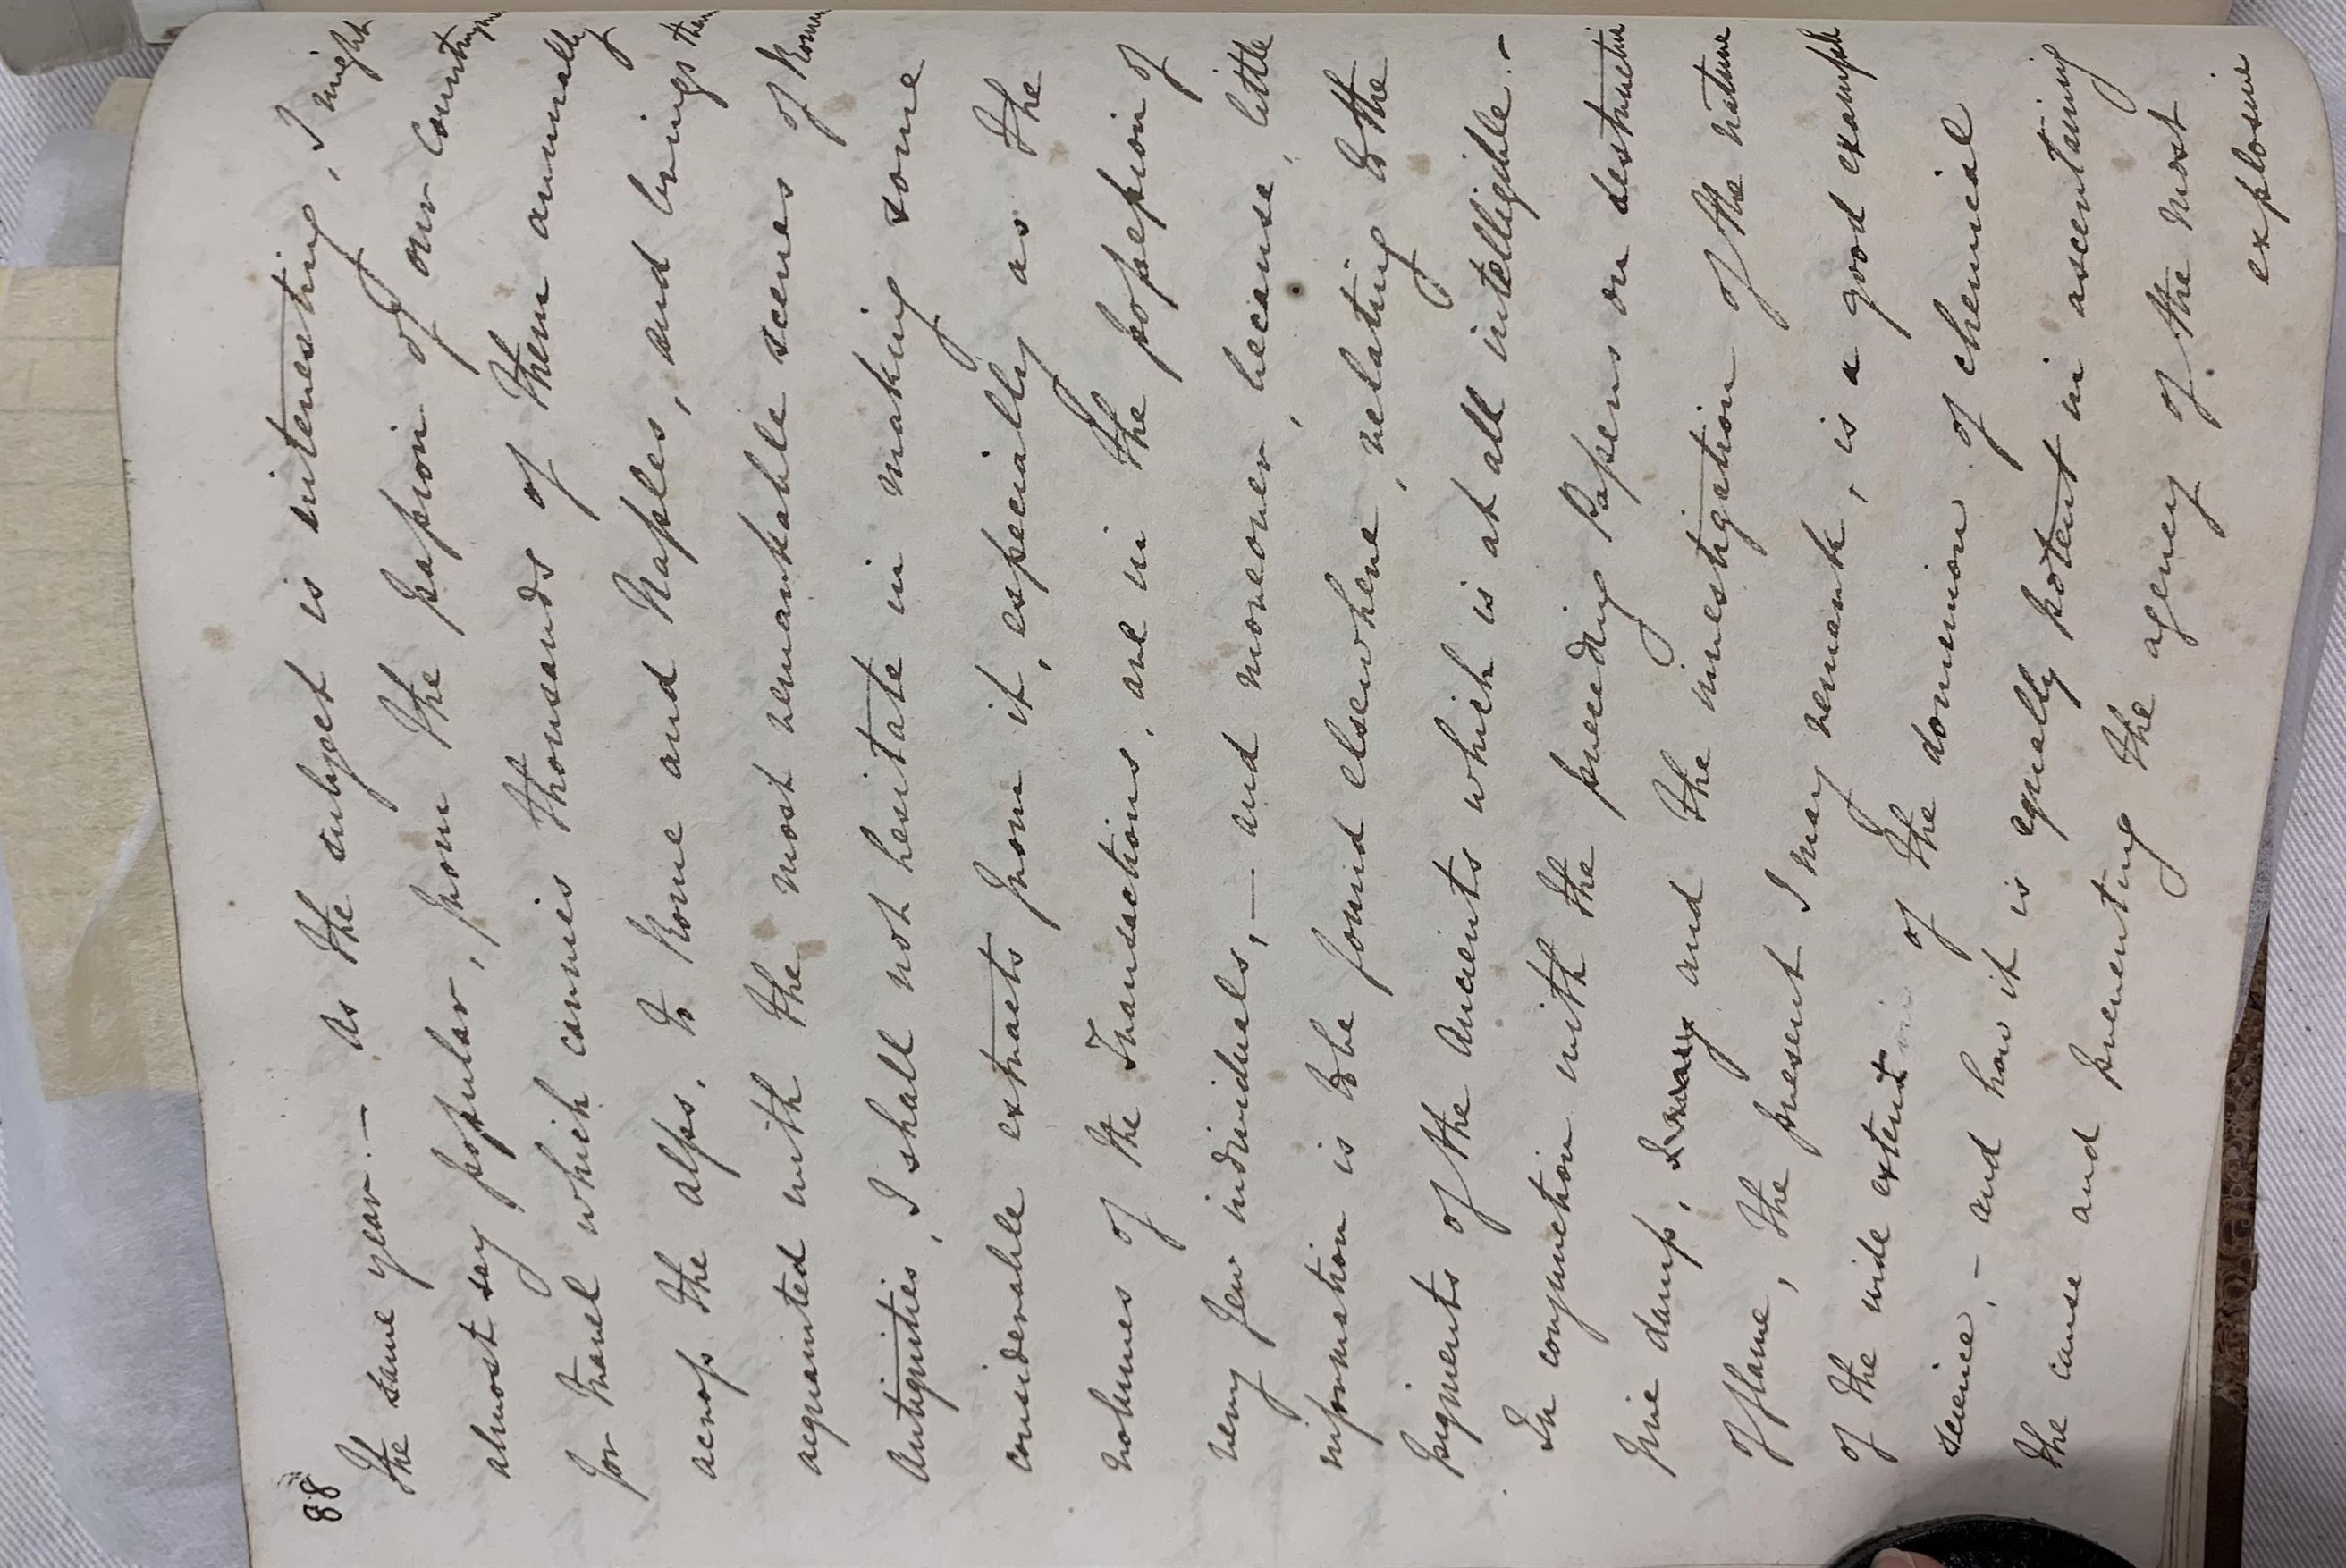 88
the same year. — As the subject is interesting, I might
almost say popular, from the passion of our Countrymen
for travel which carries thousands of them annually
across the alps, to Rome and Naples, and brings them
acquainted with the most remarkable scenes of Roman
Antiquities, I shall not hesitate in making some
considerable extracts from it, especially as the
volumes of the Transactions, are in the possession of
very few individuals, — and moreover, because, little
information is to be found elsewhere, relating to the
pigments of the Ancients which is at all intelligible. —
In conjunction with the preceding Papers on destructive
fire damp, and the investigation of the nature
of flame, the present I may remark, is a good example
of the wide extent of the dominion of chemical
science, — and how it is equally potent in ascertaining
the cause and preventing the agency of the most
explosive